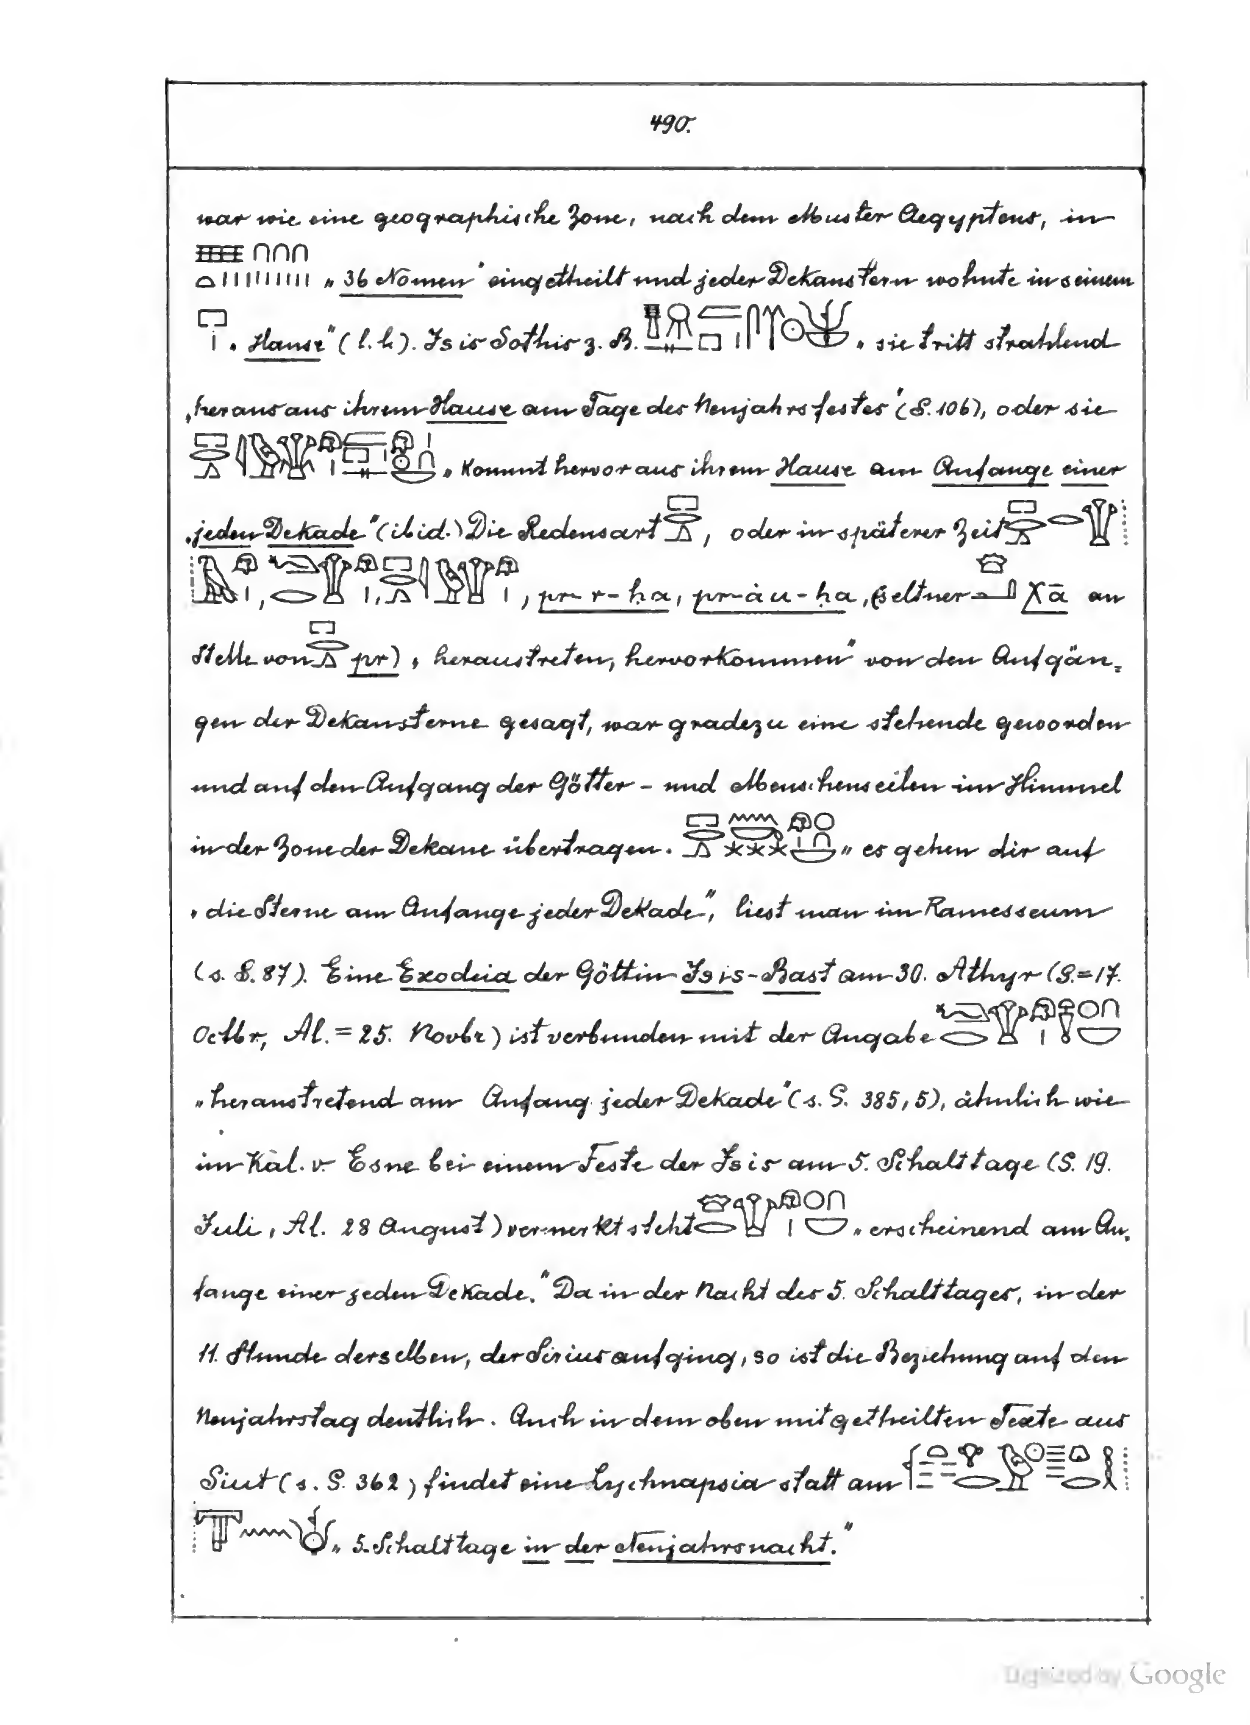 490.
war wie eine geographische Zone, nach dem Muster Aegyptens, in
„36 Nomen“ eingetheilt und jeder Dekanstern wohnte in seinem
„Hause“ (l. l.). Isis Sothis z. B. „sie tritt strahlend
„heraus aus ihrem Hause am Tage des Neujahrsfestes“ (S. 106), oder sie
„kommt hervor aus ihrem Hause am Anfange einer
„jeden Dekade“ (ibid.) Die Redensart , oder in späterer Zeit
, , , pr-r-ḥa, pr-àu-ḥa, (seltner χā an
Stelle von pr), „heraustreten, hervorkommen“ von den Aufgän-
gen der Dekansterne gesagt, war gradezu eine stehende geworden
und auf den Aufgang der Götter- und Menschenseelen im Himmel
in der Zone der Dekane übertragen. „es gehen dir auf
„die Sterne am Anfange jeder Dekade“, liest man im Ramesseum
(s. S. 87). Eine Exodeia der Göttin Isis-Bast am 30. Athyr (S. = 17.
Octbr, Al. = 25. Novbr) ist verbunden mit der Angabe
„heraustretend am Anfang jeder Dekade“ (s. S. 385, 5), ähnlich wie
im Kal. v. Esne bei einem Feste der Isis am 5. Schalttage (S. 19.
Juli, Al. 28 August) vermerkt steht „erscheinend am An-
fange einer jeden Dekade.“ Da in der Nacht des 5. Schalttages, in der
11. Stunde derselben, der Sirius aufging, so ist die Beziehung auf den
Neujahrstag deutlich. Auch in dem oben mitgetheilten Texte aus
Siut (s. S. 362) findet eine Lychnapsia statt am
„5. Schalttage in der Neujahrsnacht.“
Digitized by Google